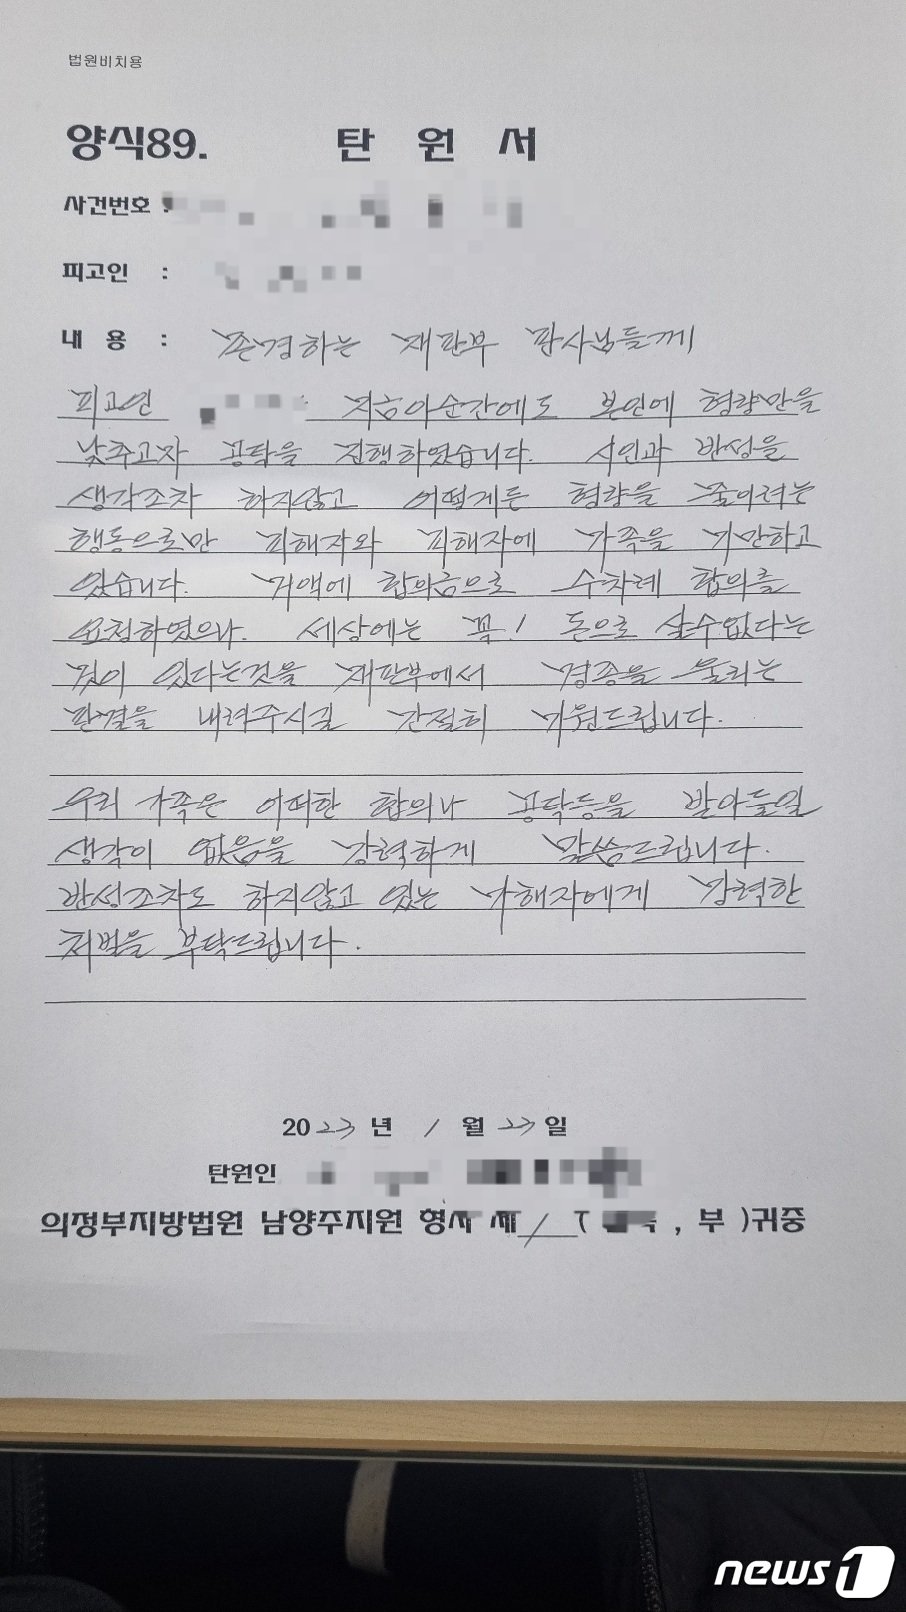 법원비치용
양식89. 탄 원 서
사건번호 :
피고인 :
내 용 : 존경하는 재판부 판사님들께
피고인 지금이순간에도 본인에 형량만을
낮추고자 공탁을 진행하였습니다. 시인과 반성을
생각조차 하지않고 어떻게든 형량을 줄이려는
행동으로만 피해자와 피해자에 가족을 기만하고
있습니다. 거액에 합의금으로 수차례 합의를
요청하였으나. 세상에는 꼭! 돈으로 살수없다는
것이 있다는것을 재판부에서 경종을 울리는
판결을 내려주시길 간절히 기원드립니다.
우리 가족은 어떠한 합의나 공탁등을 받아들일
생각이 없음을 강력하게 말씀드립니다.
반성조차도 하지않고 있는 가해자에게 강력한
처벌을 부탁드립니다.
2023년 1월 23일
탄원인
의정부지방법원 남양주지원 형사 제 1 ( , 부 )귀중
news1